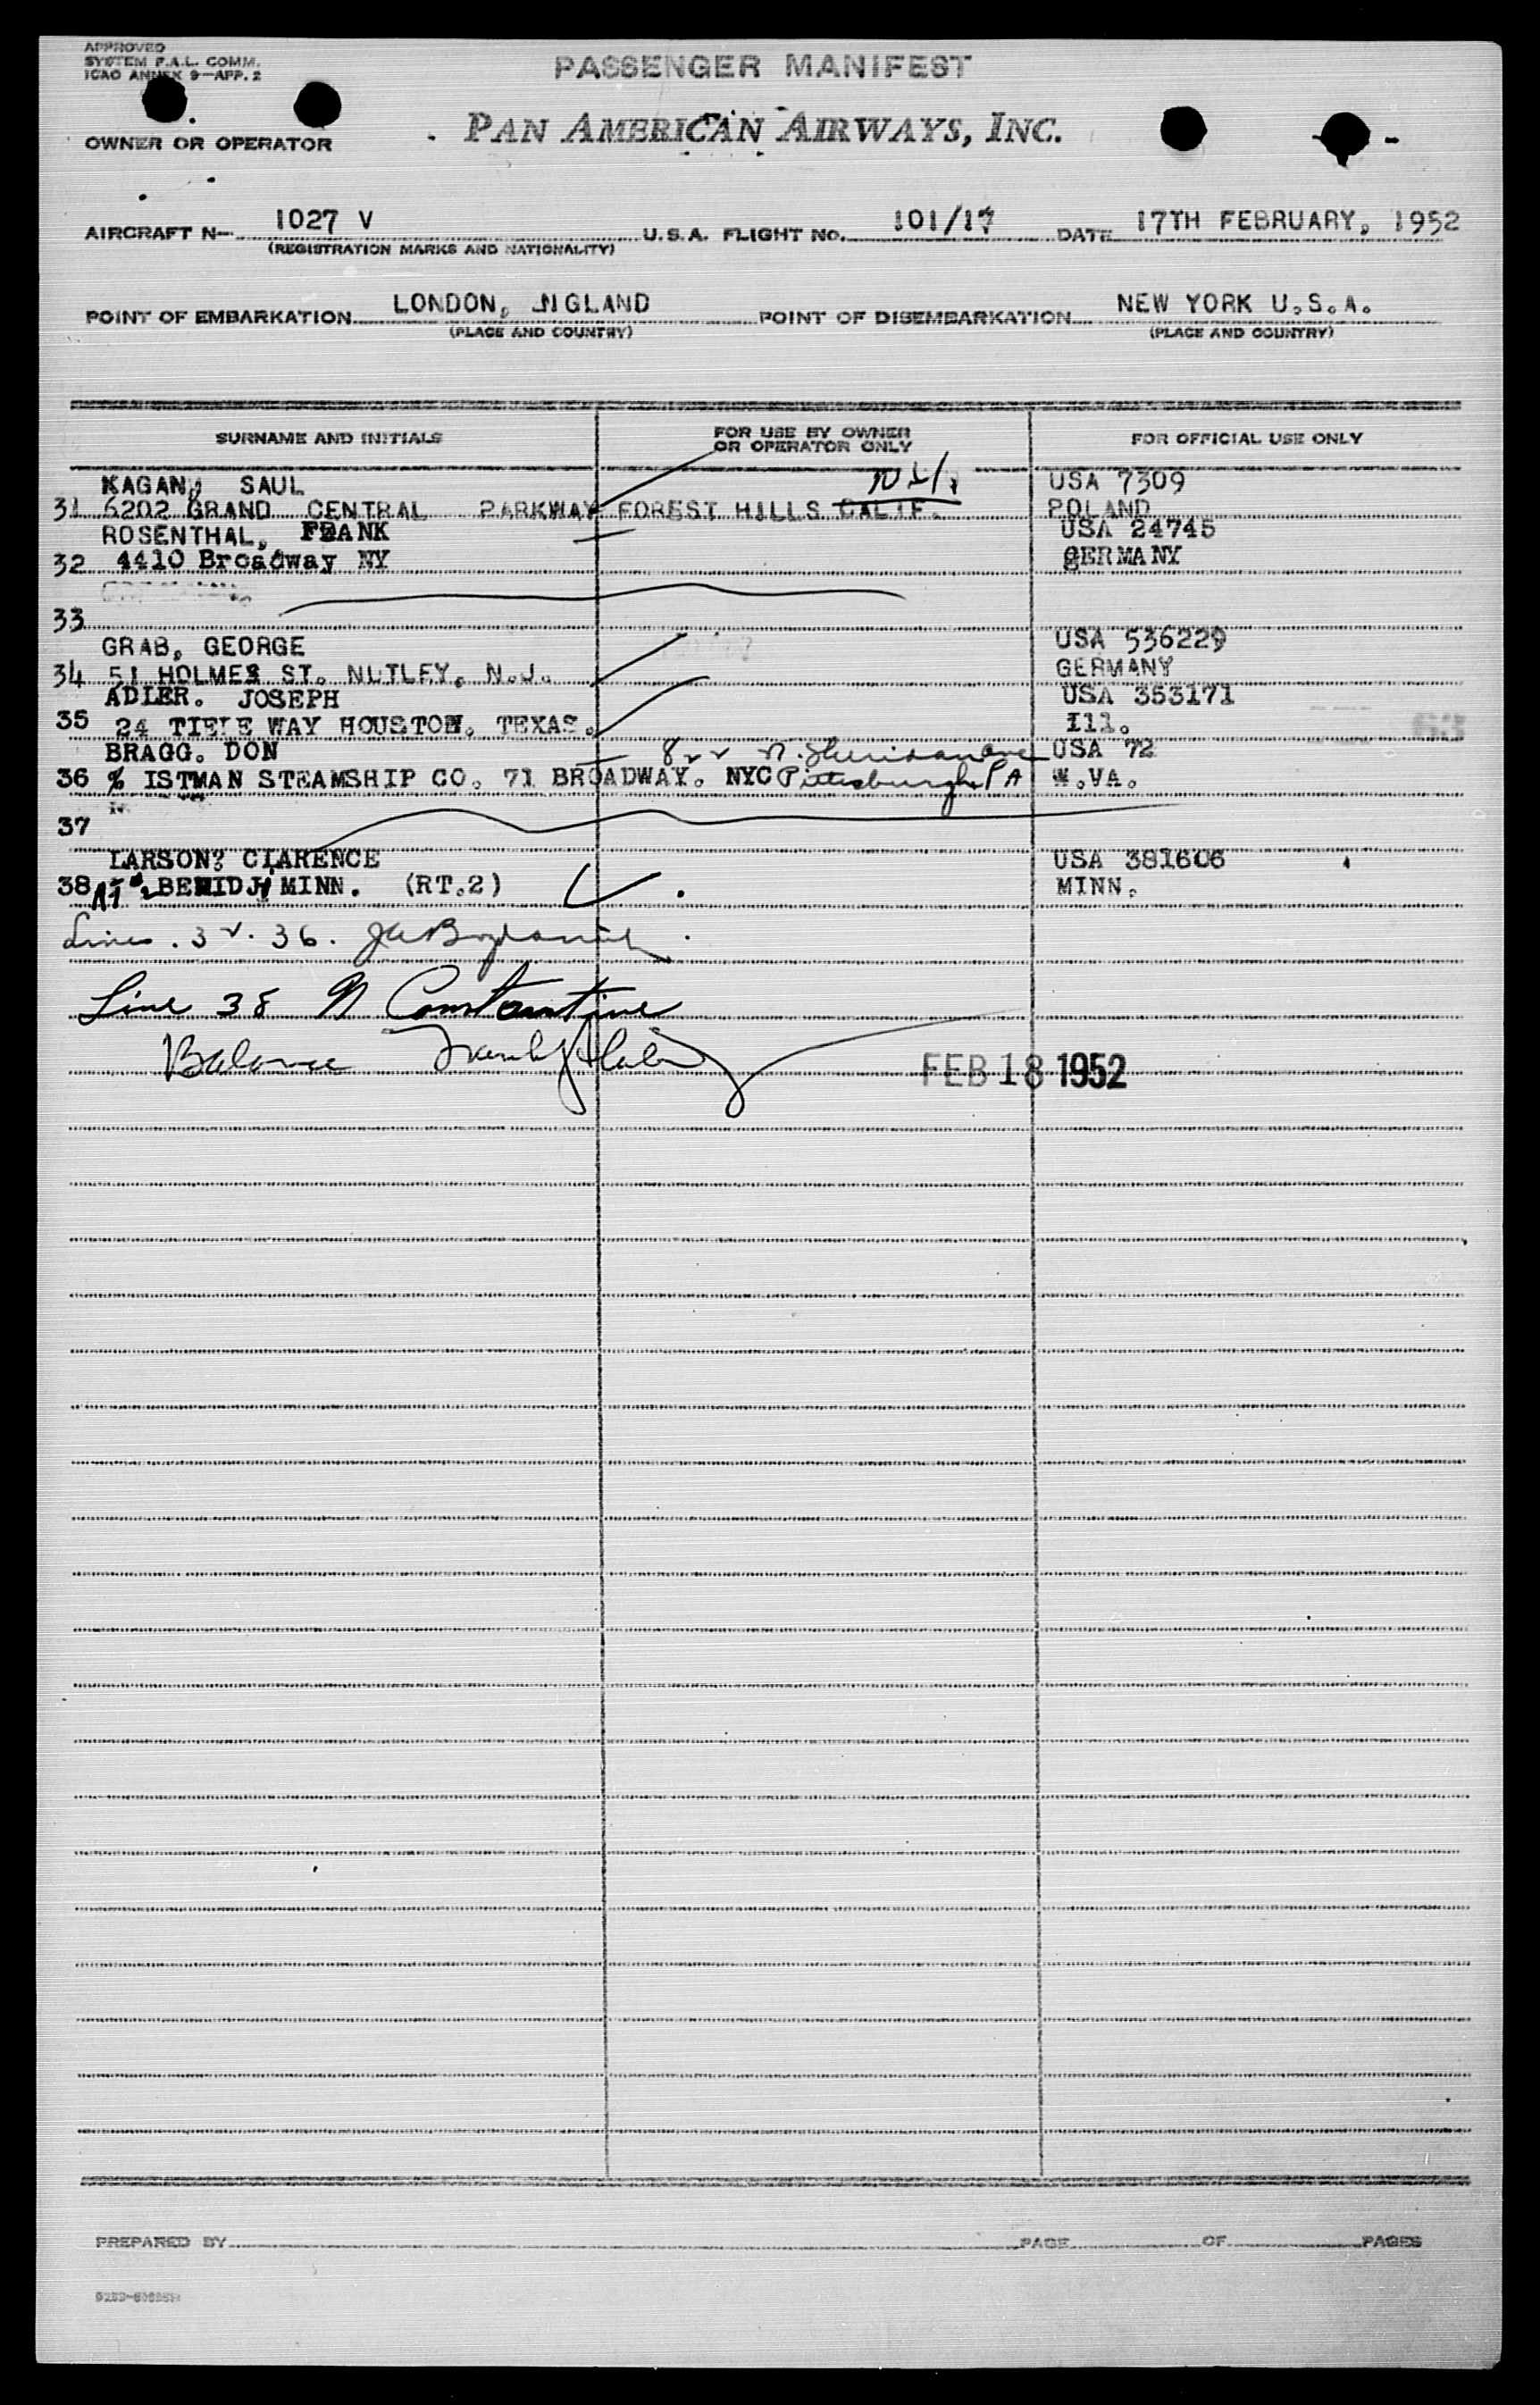 APPROVED
SYSTEM F.A.L. COMM.
ICAO ANNEX 9-APP. 2
PASSENGER MANIFEST
OWNER OR OPERATOR PAN AMERICAN AIRWAYS, INC.
AIRCRAFT N- 1027 V U.S.A. FLIGHT NO. 101/17 DATE 17TH FEBRUARY, 1952
(REGISTRATION MARKS AND NATIONALITY)
POINT OF EMBARKATION LONDON, NGLAND POINT OF DISEMBARKATION NEW YORK U.S.A.
(PLACE AND COUNTRY) (PLACE AND COUNTRY)
SURNAME AND INITIALS FOR USE BY OWNER OR OPERATOR ONLY FOR OFFICIAL USE ONLY
KAGAN, SAUL USA 7309
31 6202 GRAND CENTRAL PARKWAY FOREST HILLS CALIF. POLAND
ROSENTHAL, FRANK USA 24745
32 4410 Broadway NY GERMANY
33
GRAB, GEORGE USA 536229
34 51 HOLMES ST. NUTLEY, N.J. GERMANY
ADLER. JOSEPH USA 353171
35 24 TIELE WAY HOUSTON. TEXAS. Ill.
63
BRAGG. DON 822 N. Sheridan Ave USA 72
36 % ISTMAN STEAMSHIP CO. 71 BROADWAY. NYC Pittsburgh PA W.VA.
37
LARSON? CLARENCE USA 381606
38 RT 2 BEMIDJI MINN. (RT.2) MINN.
Lines. 32. 36.
Line 38 Constantine
Balance
FEB 18 1952
PREPARED BY PAGE OF PAGES